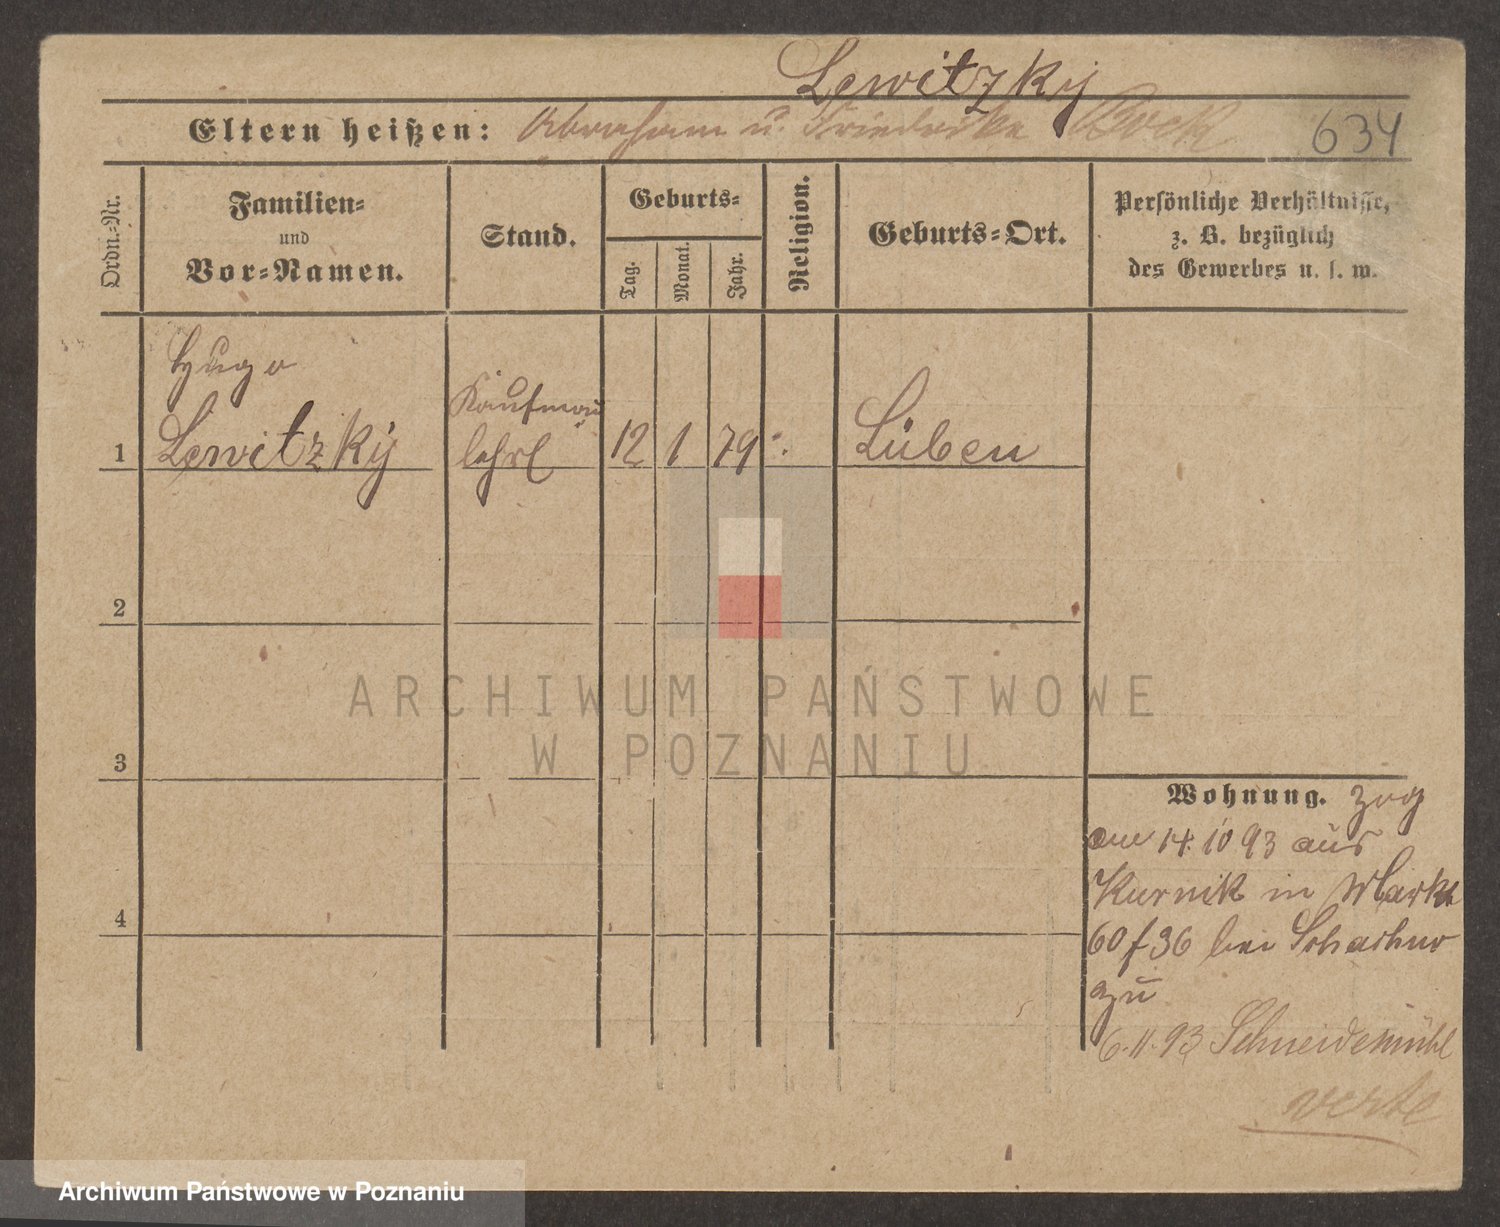 Lewitzky
Eltern heißen: Abraham u. Friederike
634
Ordn.-Nr.
Familien-
und
Vor-Namen.
Stand.
Geburts-
Tag.
Monat.
Jahr.
Religion.
Geburts-Ort.
Persönliche Verhältnisse,
z. B. bezüglich
des Gewerbes u. s. w.
Hugo
Lewitzky
Kaufman
lehrl
1
12 1 79
Lüben
2
3
4
ARCHIWUM PAŃSTWOWE
W POZNANIU
Wohnung. zog
am 14. 10 93 aus
Kurnik in Markt
60 f 36 bei
zu
6. 11. 93 Schneidemühl
verte
Archiwum Państwowe w Poznaniu